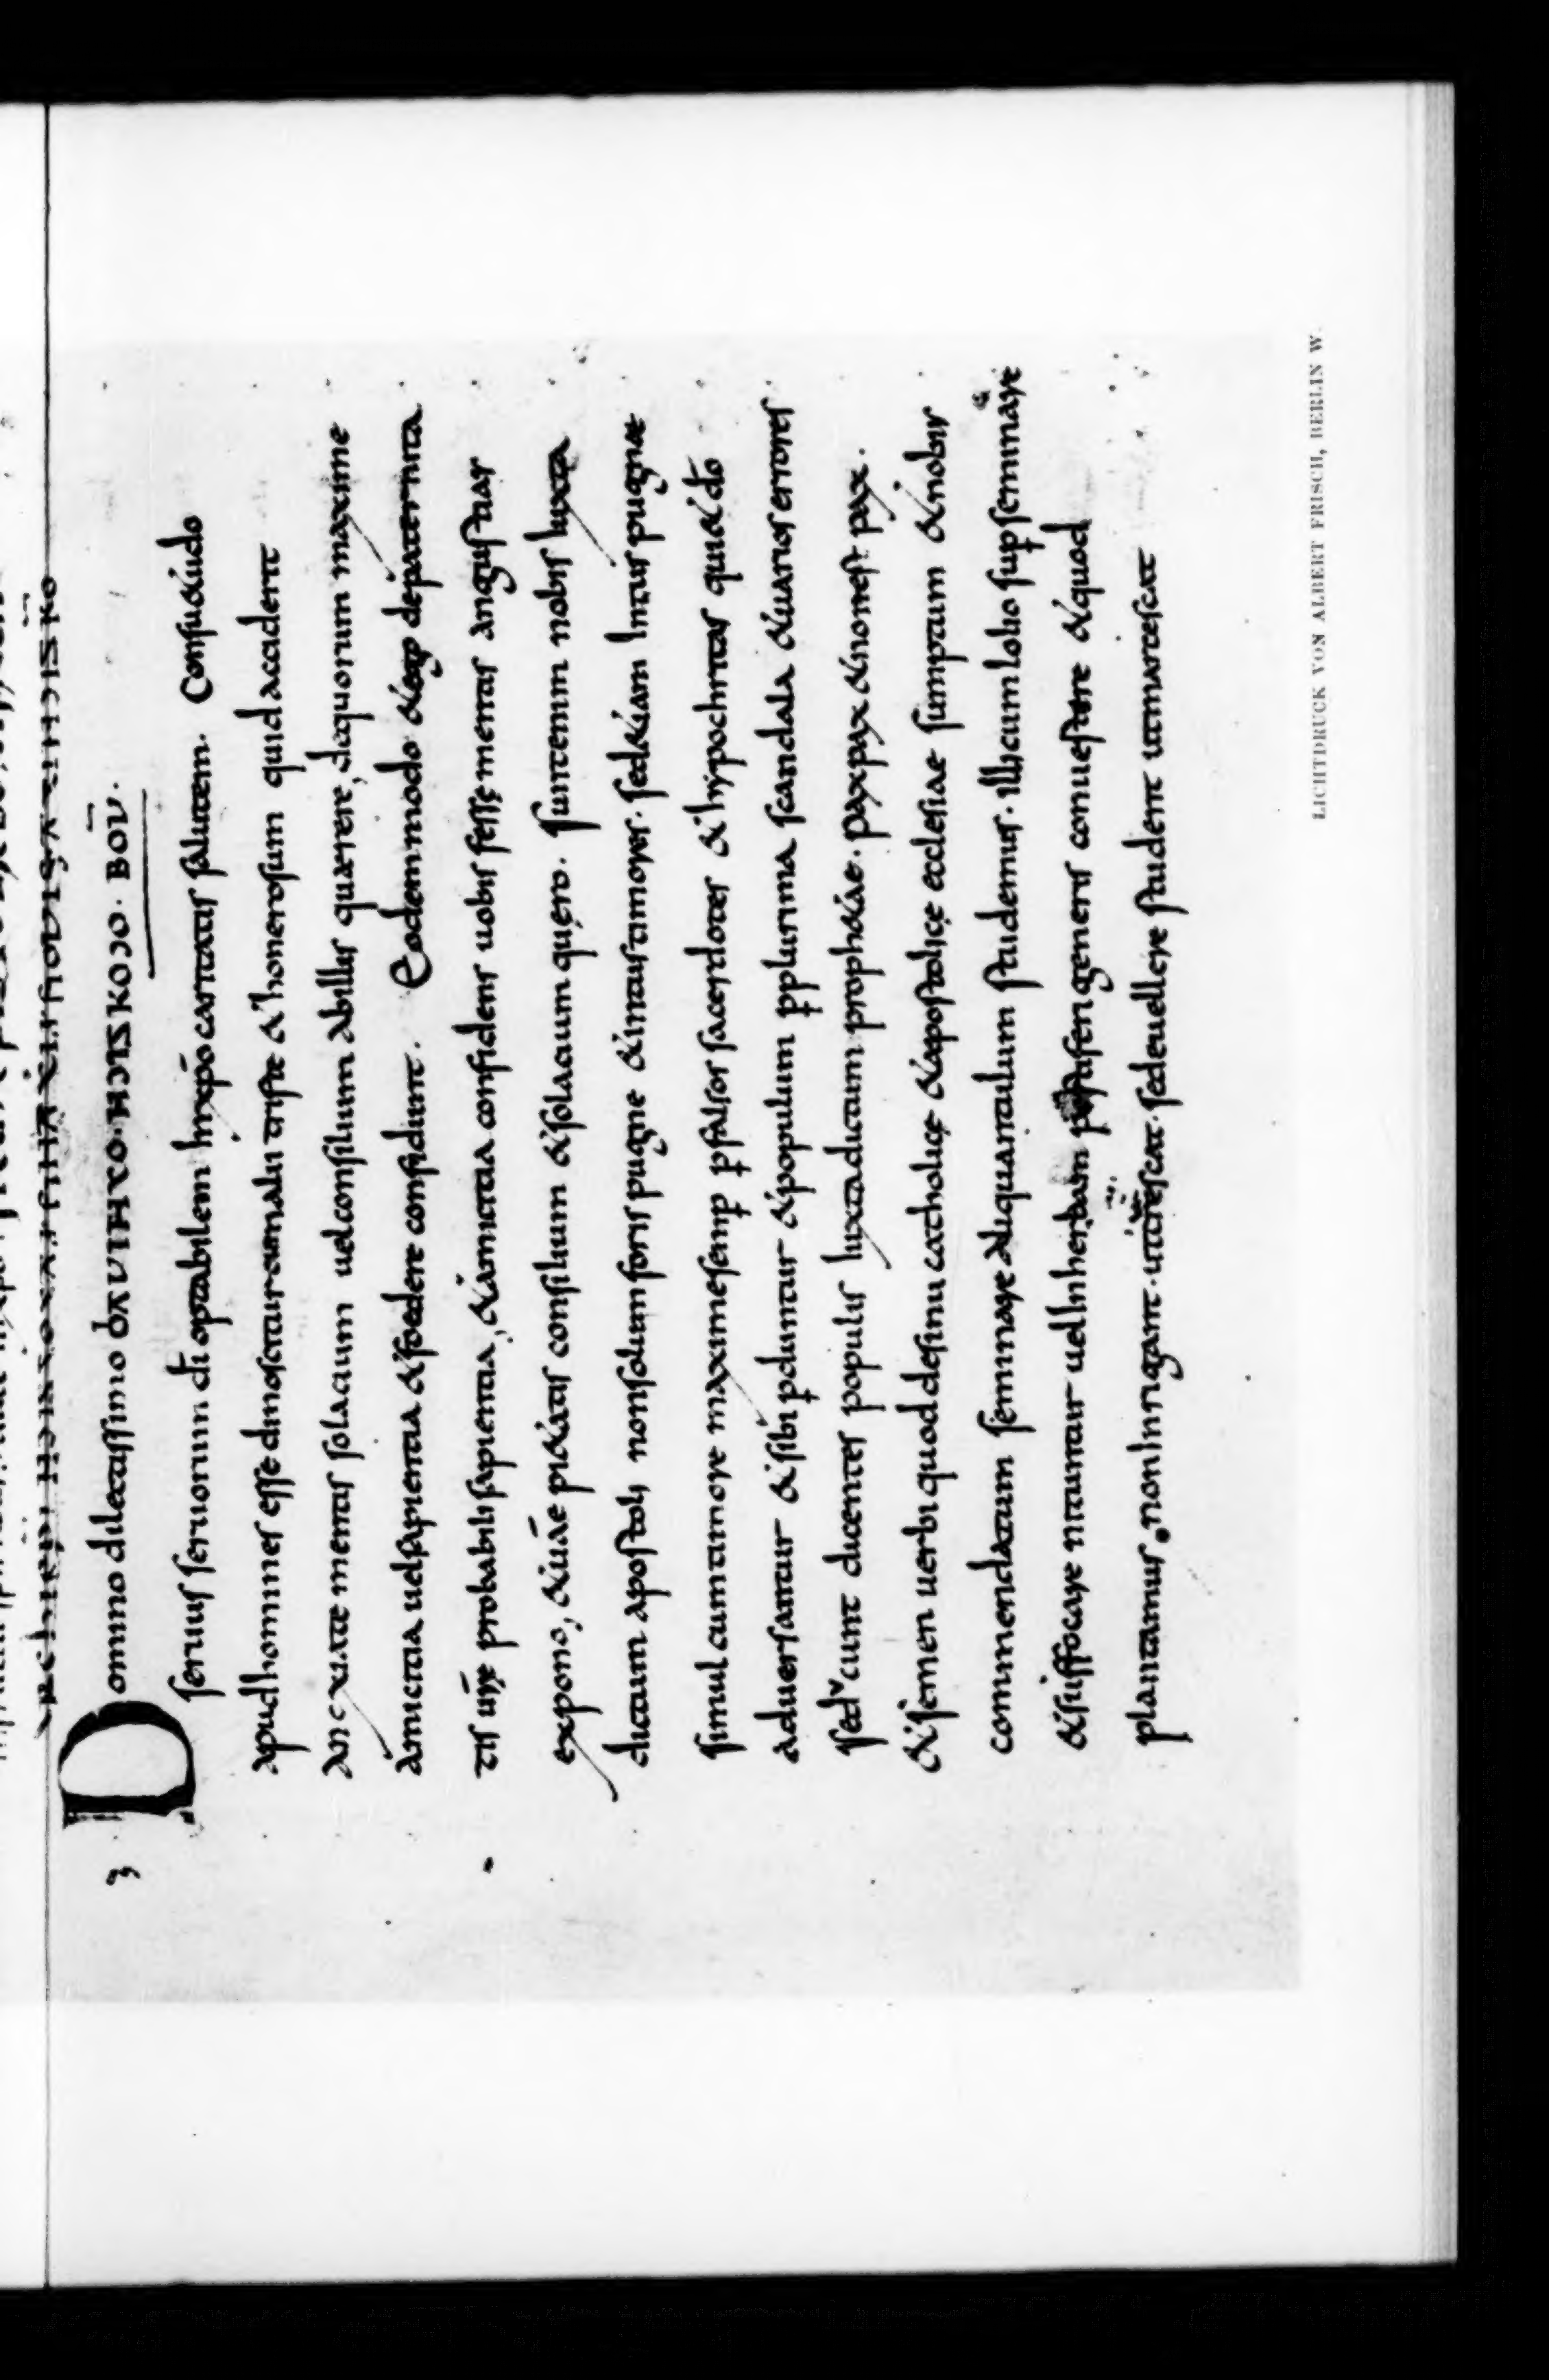 3 Domino dilectissimo
seruus seruorum di optabilem In xp̄o caritatis salutem. Consuetudo
apud homines esse dinoscitur cum alii triste et honerosum quid acciderit
ancxiate mentis solacium uel consilium ab illis quaerere, de quorum maxime
amicitia uel sapientia et foedere confidunt. Eodem modo et ego de paternita
tis ur̄ae probabili sapientia, et amicitia confidens uobis fessę mentis angustias
expono, et ur̄ae pietatis consilium et solacium quęro. Sunt enim nobis Iuxta
dictum apostoli non solum foris pugne et intus timores. sed etiam Intus pugnae
simul cum timore maxime semp̱ p̱ falsos sacerdotes et hypochritas qui et d̄o
aduersantur et sibi p̱duntur et populum p̱ plurima scandala et uarios errores
seducunt dicentes populis Iuxta dictum prophetae. pax pax et non est pax.
et semen uerbi quod de sinu catholicę et apostolicę ecclesiae sumptum et nobis
commendatum seminare aliquantulum studemus. illi cum lolio sup̱seminare
et suffocare nituntur uel In herbam pestiferi generis conuestere et quod
plantamus, non Inrigant. sed euellere student ut marcescat
LICHTDRUCK VON ALBERT FRISCH, BERLIN W.